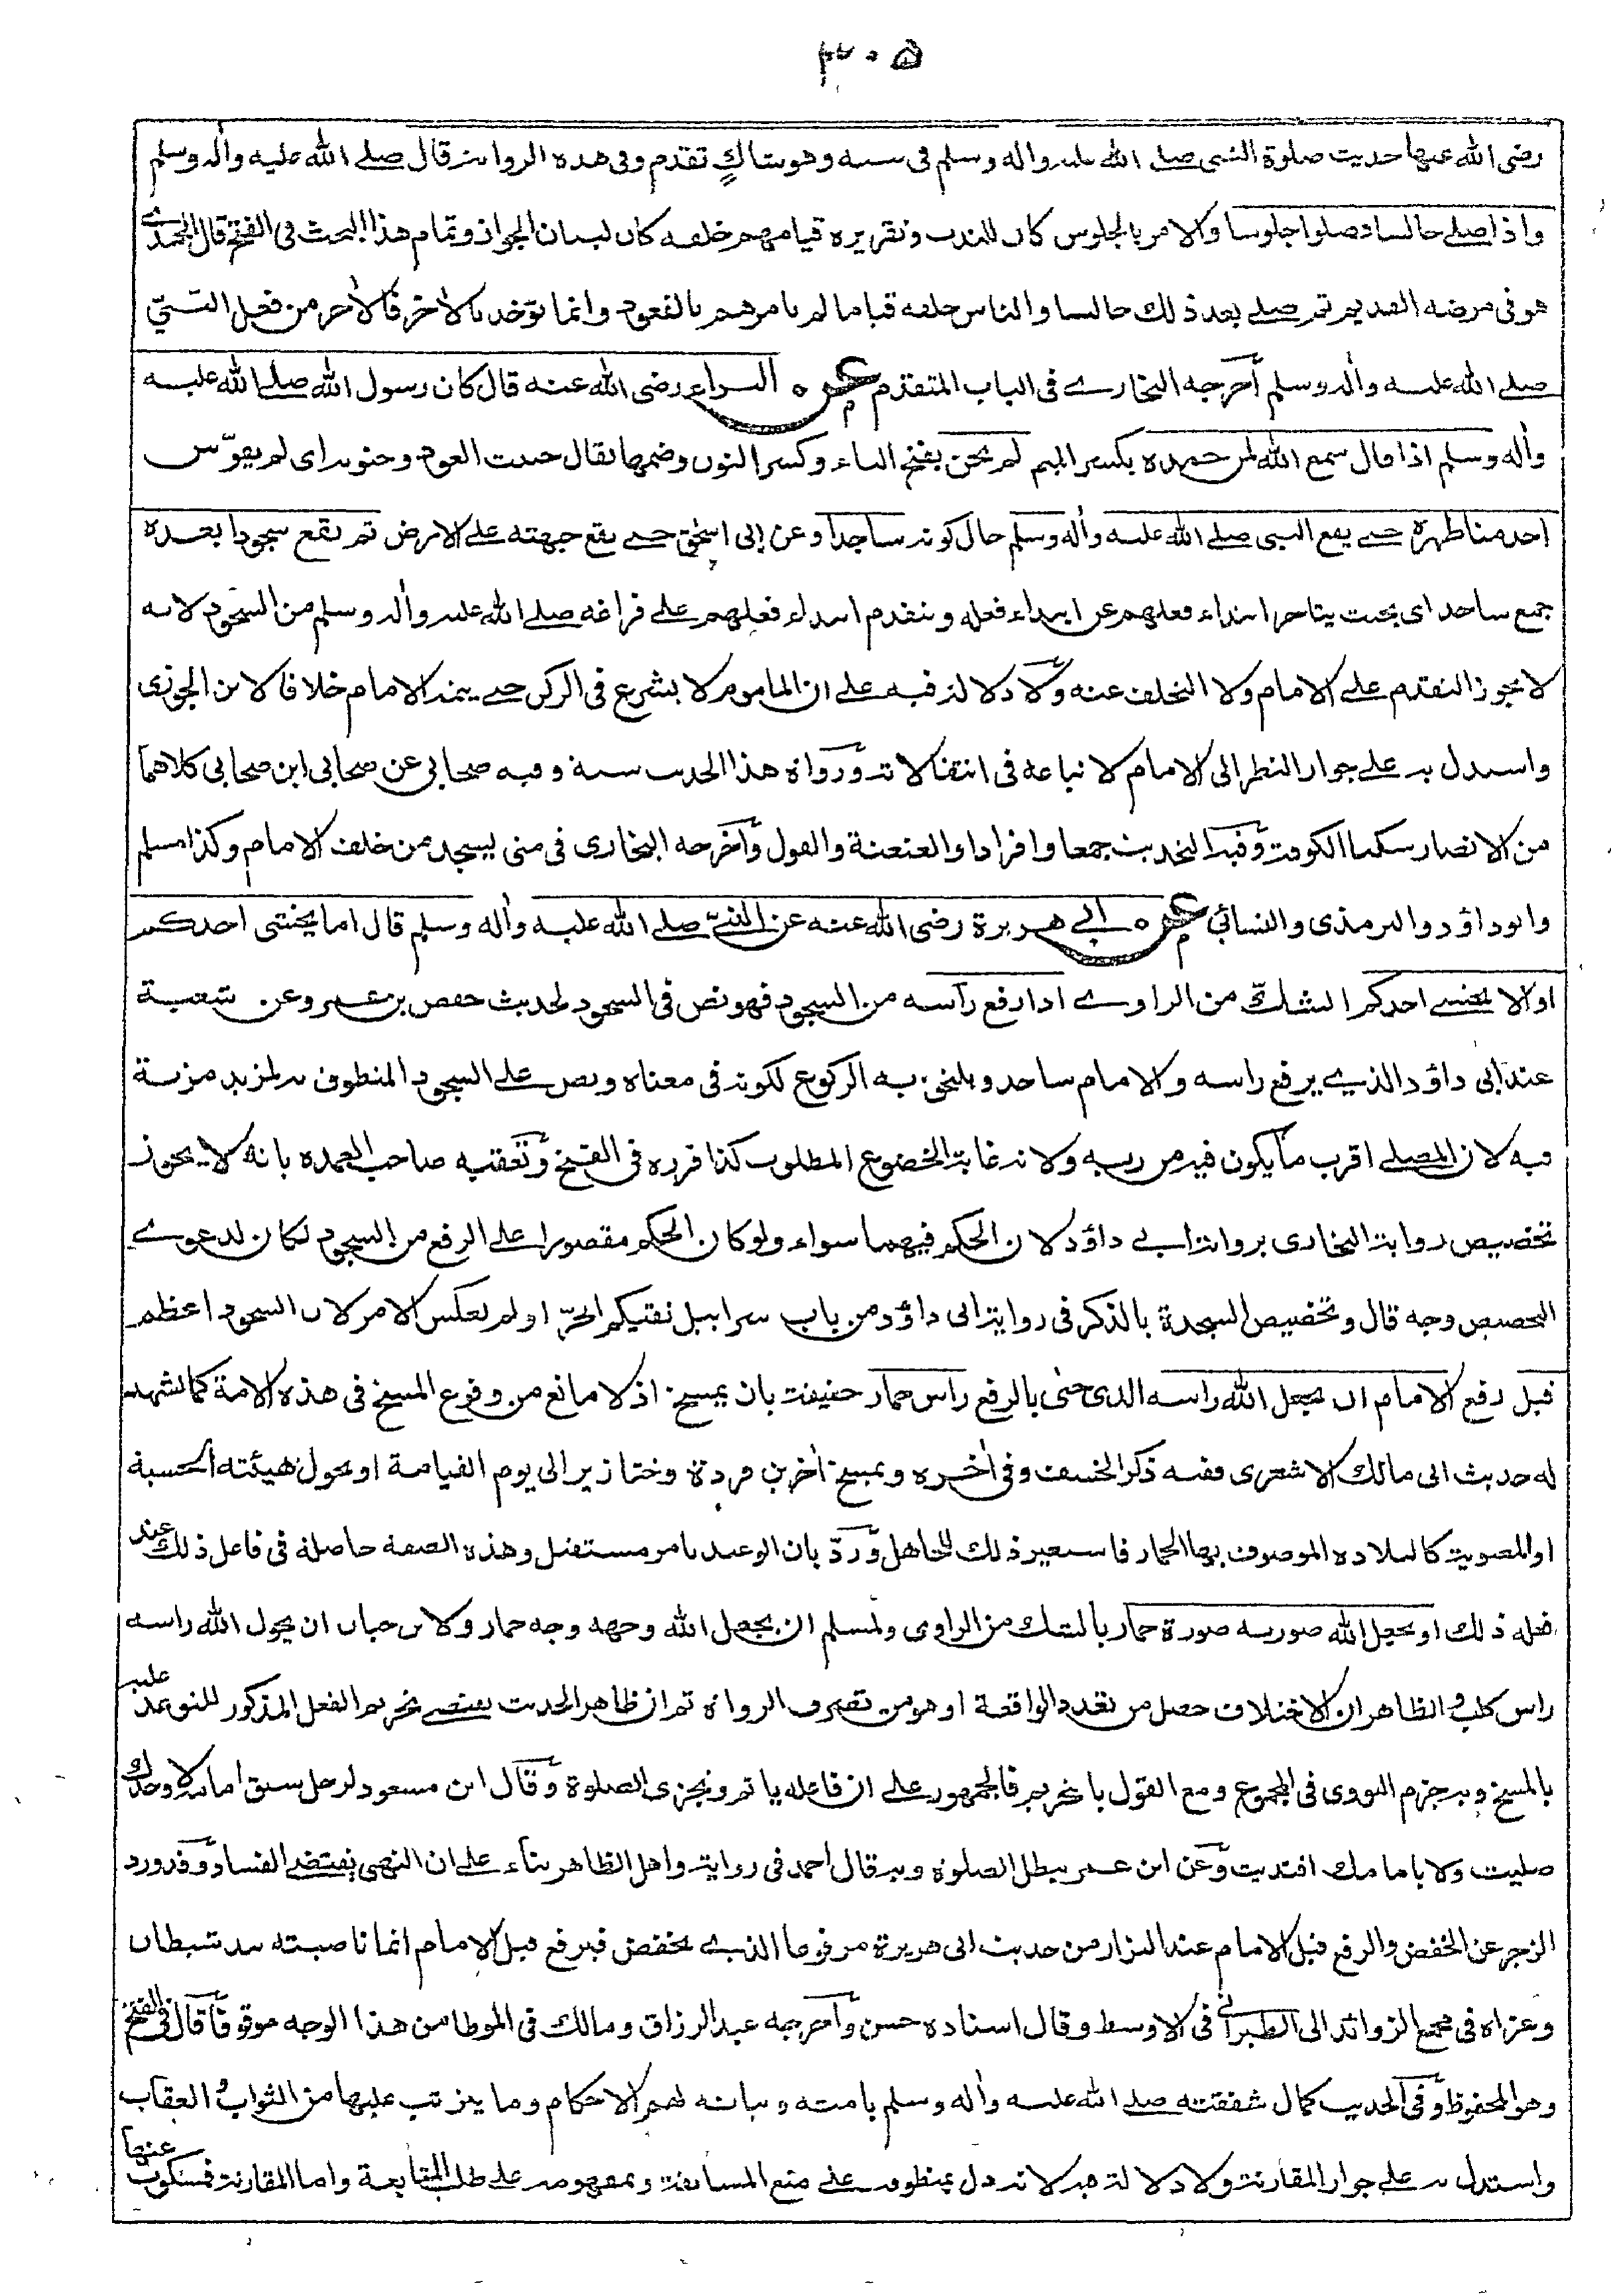 ٣٠٥
رضى الله عنها حديث صلوة النبى صلے الله عليه واله وسلم فى بيته وهو شاكٍ تقدم وفى هذه الرواية قال صلے الله عليه واٰله وسلم
واذا صلے جالسا فصلوا جلوسا والامر بالجلوس كان للندب وتقريره قيامهم خلفه كان لبيان الجواز وتمام هذا البحث فى الفتح قال الحميدے
هو فى مرضه القديم ثم صلے بعد ذلك جالسا والناس خلفه قياما لم يامرهم بالقعود وانما يؤخذ بالاٰخر فالاٰخر من فعل النبىّ
صلے الله عليه واٰله وسلم اخرجه البخارے فى الباب المتقدم عن البراء رضى الله عنه قال كان رسول الله صلے الله عليه
واٰله وسلم اذا قال سمع الله لمن حمده بكسر الميم لم يحن بفتح الياء وكسر النون وضمها يقال حنيت العود وحنوته اى لم يقوّس
احد منا ظهره حتے يقع النبى صلے الله عليه واٰله وسلم حال كونه ساجدا وعن ابى اسحٰق حتے يقع جبهته علے الارض ثم نقع سجودا بعده
جمع ساجد اى بحيث يتاخر ابتداء فعلهم عن ابتداء فعله ويتقدم ابتداء فعلهم علے فراغه صلے الله عليه واٰله وسلم من السجود لانه
لا يجوز التقدم علے الامام ولا التخلف عنه ولا دلالة فيه علے ان الماموم لا يشرع فى الركن حتے يتمه الامام خلافا لابن الجوزى
واستدل به علے جواز النظر الى الامام لاتباعه فى انتقالاته ورواة هذا الحديث ستة وفيه صحابى عن صحابى ابن صحابى كلاهما
من الانصار سكنا الكوفة وفيه التحديث جمعا وافرادا والعنعنة والقول واخرجه البخارى فى متى يسجد من خلف الامام وكذا مسلم
وابوداؤد والترمذى والنسائى عن ابے هريرة رضى الله عنه عن النبىّ صلے الله عليه واٰله وسلم قال اما يخشى احدكم
او الا يخشے احدكم الشكّ من الراوے اذا رفع رأسه من السجود فهو نص فى السجود لحديث حفص بن عمر وعن شعبة
عند ابى داؤد الذيے يرفع راسه والامام ساجد ويلتحق به الركوع لكونه فى معناه ونص علے السجود المنطوق به لمزيد مزية
فيه لان المصلے اقرب ما يكون فيه من ربه ولانه غاية الخضوع المطلوب كذا قرره فى الفتح وتعقبه صاحب العمده بانه لا يجوز
تخصيص رواية البخارى برواية ابے داؤد لان الحكم فيهما سواء ولو كان الحكم مقصورا علے الرفع من السجود لكان لدعوے
التخصيص وجه قال وتخصيص السجدة بالذكر فى رواية ابى داؤد من باب سرابيل تقيكم الحرّ او لم يعكس الامر لان السجود اعظم
قبل رفع الامام ان يجعل الله راسه الذى جنى بالرفع راس حمار حقيقة بان يمسخ اذ لا مانع من وقوع المسخ فى هذه الامة كما يشهد
له حديث ابى مالك الاشعرى ففيه ذكر الخسف وفى اٰخره ويمسخ اٰخرين قردة وخنازير الى يوم القيامة او يحول هيئته الحسية
او المعنوية كالبلاده الموصوف بها الحمار فاستعير ذلك للجاهل وردّ بان الوعيد بامر مستقبل وهذه الصفة حاصلة فى فاعل ذلك عند
فعله ذلك او يجعل الله صورته صورة حمار بالشك من الراوى ولمسلم ان يجعل الله وجهه وجه حمار ولابن حبان ان يحول الله راسه
راس كلب والظاهر ان الاختلاف حصل من تعدد الواقعة او هو من تصرف الرواة ثم ان ظاهر الحديث يقتضے تحريم الفعل المذكور للتوعد عليه
بالمسخ وبه جزم النووى فى المجموع ومع القول بالتحريم فالجمهور علے ان فاعله ياثم وتجزى الصلوة وقال ابن مسعود لرجل سبق امامه لا وحدك
صليت ولا بامامك اقتديت وعن ابن عمر يبطل الصلوة وبه قال احمد فى رواية واهل الظاهر بناء علے ان النهى يقتضے الفساد وقد ورد
الزجر عن الخفض والرفع قبل الامام عند البزار من حديث ابى هريرة مرفوعا الذيے يخفض فيرفع قبل الامام انما ناصيته بيد شيطان
وعزاه فى مجمع الزوائد الى الطبرانے فى الاوسط وقال اسناده حسن واخرجه عبد الرزاق ومالك فى الموطا من هذا الوجه موقوفا قال فى الفتح
وهو المحفوظ وفى الحديث كمال شفقته صلے الله عليه واٰله وسلم بامته وبيانه لهم الاحكام وما يترتب عليها من الثواب والعقاب
واستدل به علے جواز المقارنة ولا دلالة فيه لانه دل بمنطوقه علے منع المسابقة وبمفهومه علے طلب المتابعة واما المقارنة فمسكوت عنها